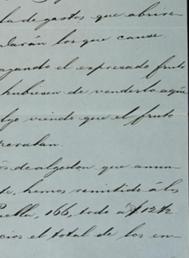 la de gastos que abrir
daran los que cause
agando el espresado fruto
hubiesen de venderlo aqui
viendo que el fruto
de algodon que anun
hemos remitido á los
Puebla, 166, todo á $12½
cios el total de los en